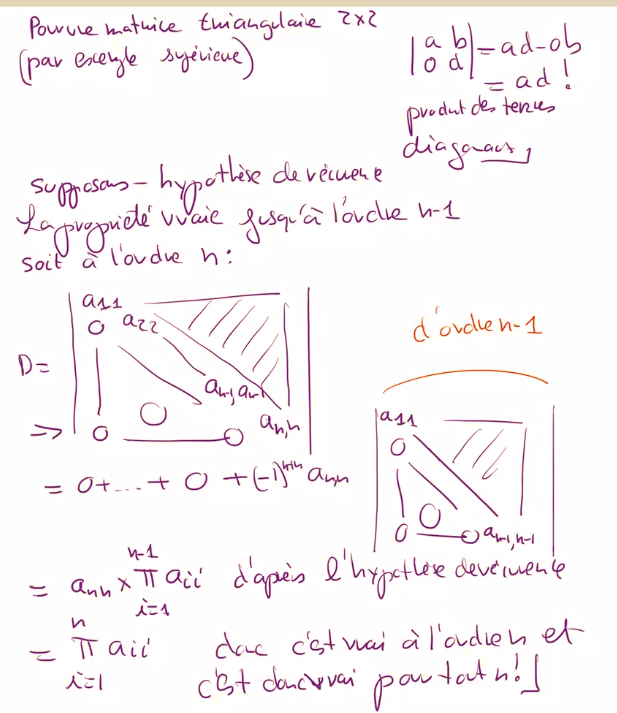 Pour une matrice triangulaire 2x2
(par exemple supérieure)
|a b| = ad - 0b
|0 d| = ad !
produit des termes
diagonaux
supposons - hypothèse de récurrence
La propriété vraie jusqu'à l'ordre n-1
soit à l'ordre n :
a11
0 a22
D=
an-1,n-1
0
an,n
=> 0 0
= 0+...+ 0 + (-1)^{n+n} ann
d'ordre n-1
a11
0
0
0 0 an-1,n-1
n-1
= ann x π aii d'après l'hypothèse de récurrence
i=1
n
= π aii donc c'est vrai à l'ordre n et
i=1 c'est donc vrai pour tout n !